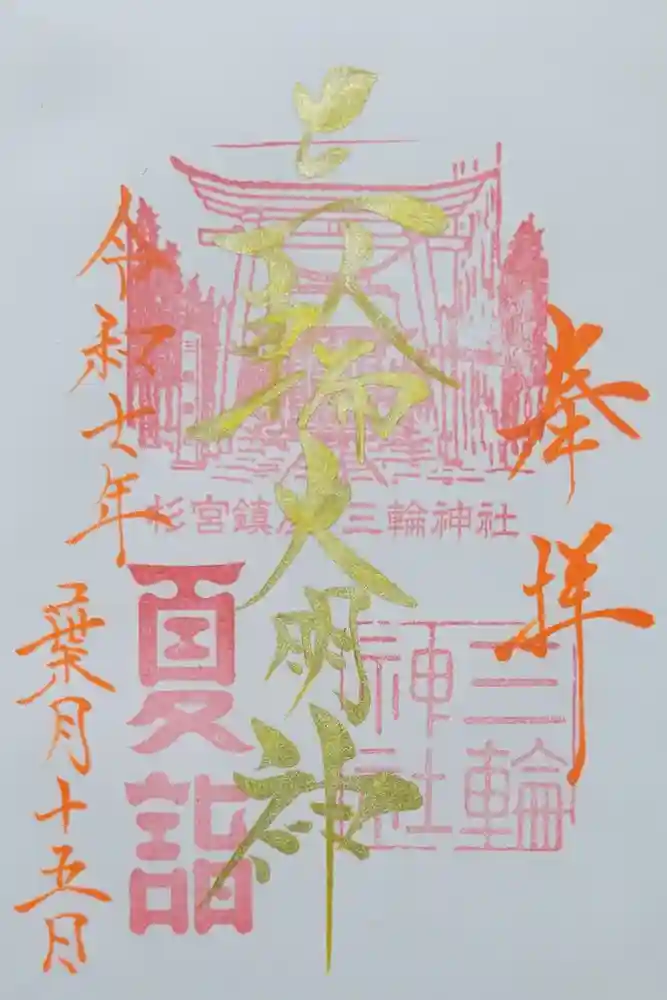 奉拝
三輪大明神
杉宮鎮座 三輪神社
三輪
神社
夏詣
令和七年
葉月十五日